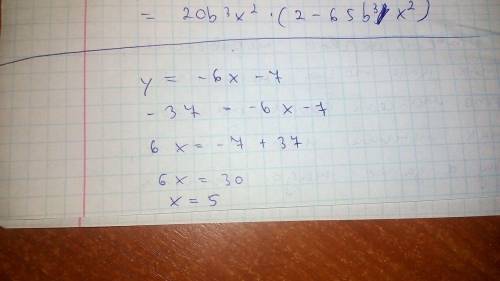 = 20b³x² · (2 - 65b³x²)
y = -6x -7
-37 = -6x -7
6x = -7 + 37
6x = 30
x = 5